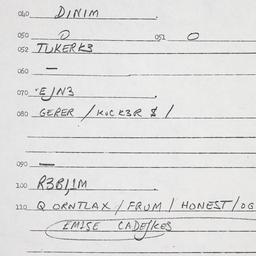 040 DINIM
050 D 051 O
052 TUKERK3
060 —
070 EJN3
080 GERER / KUCK3R $ /
090 —
100 R3BI,IM
110 Q ORNTLAX / FRUM / HONEST / OG
EMISE CADEJKES